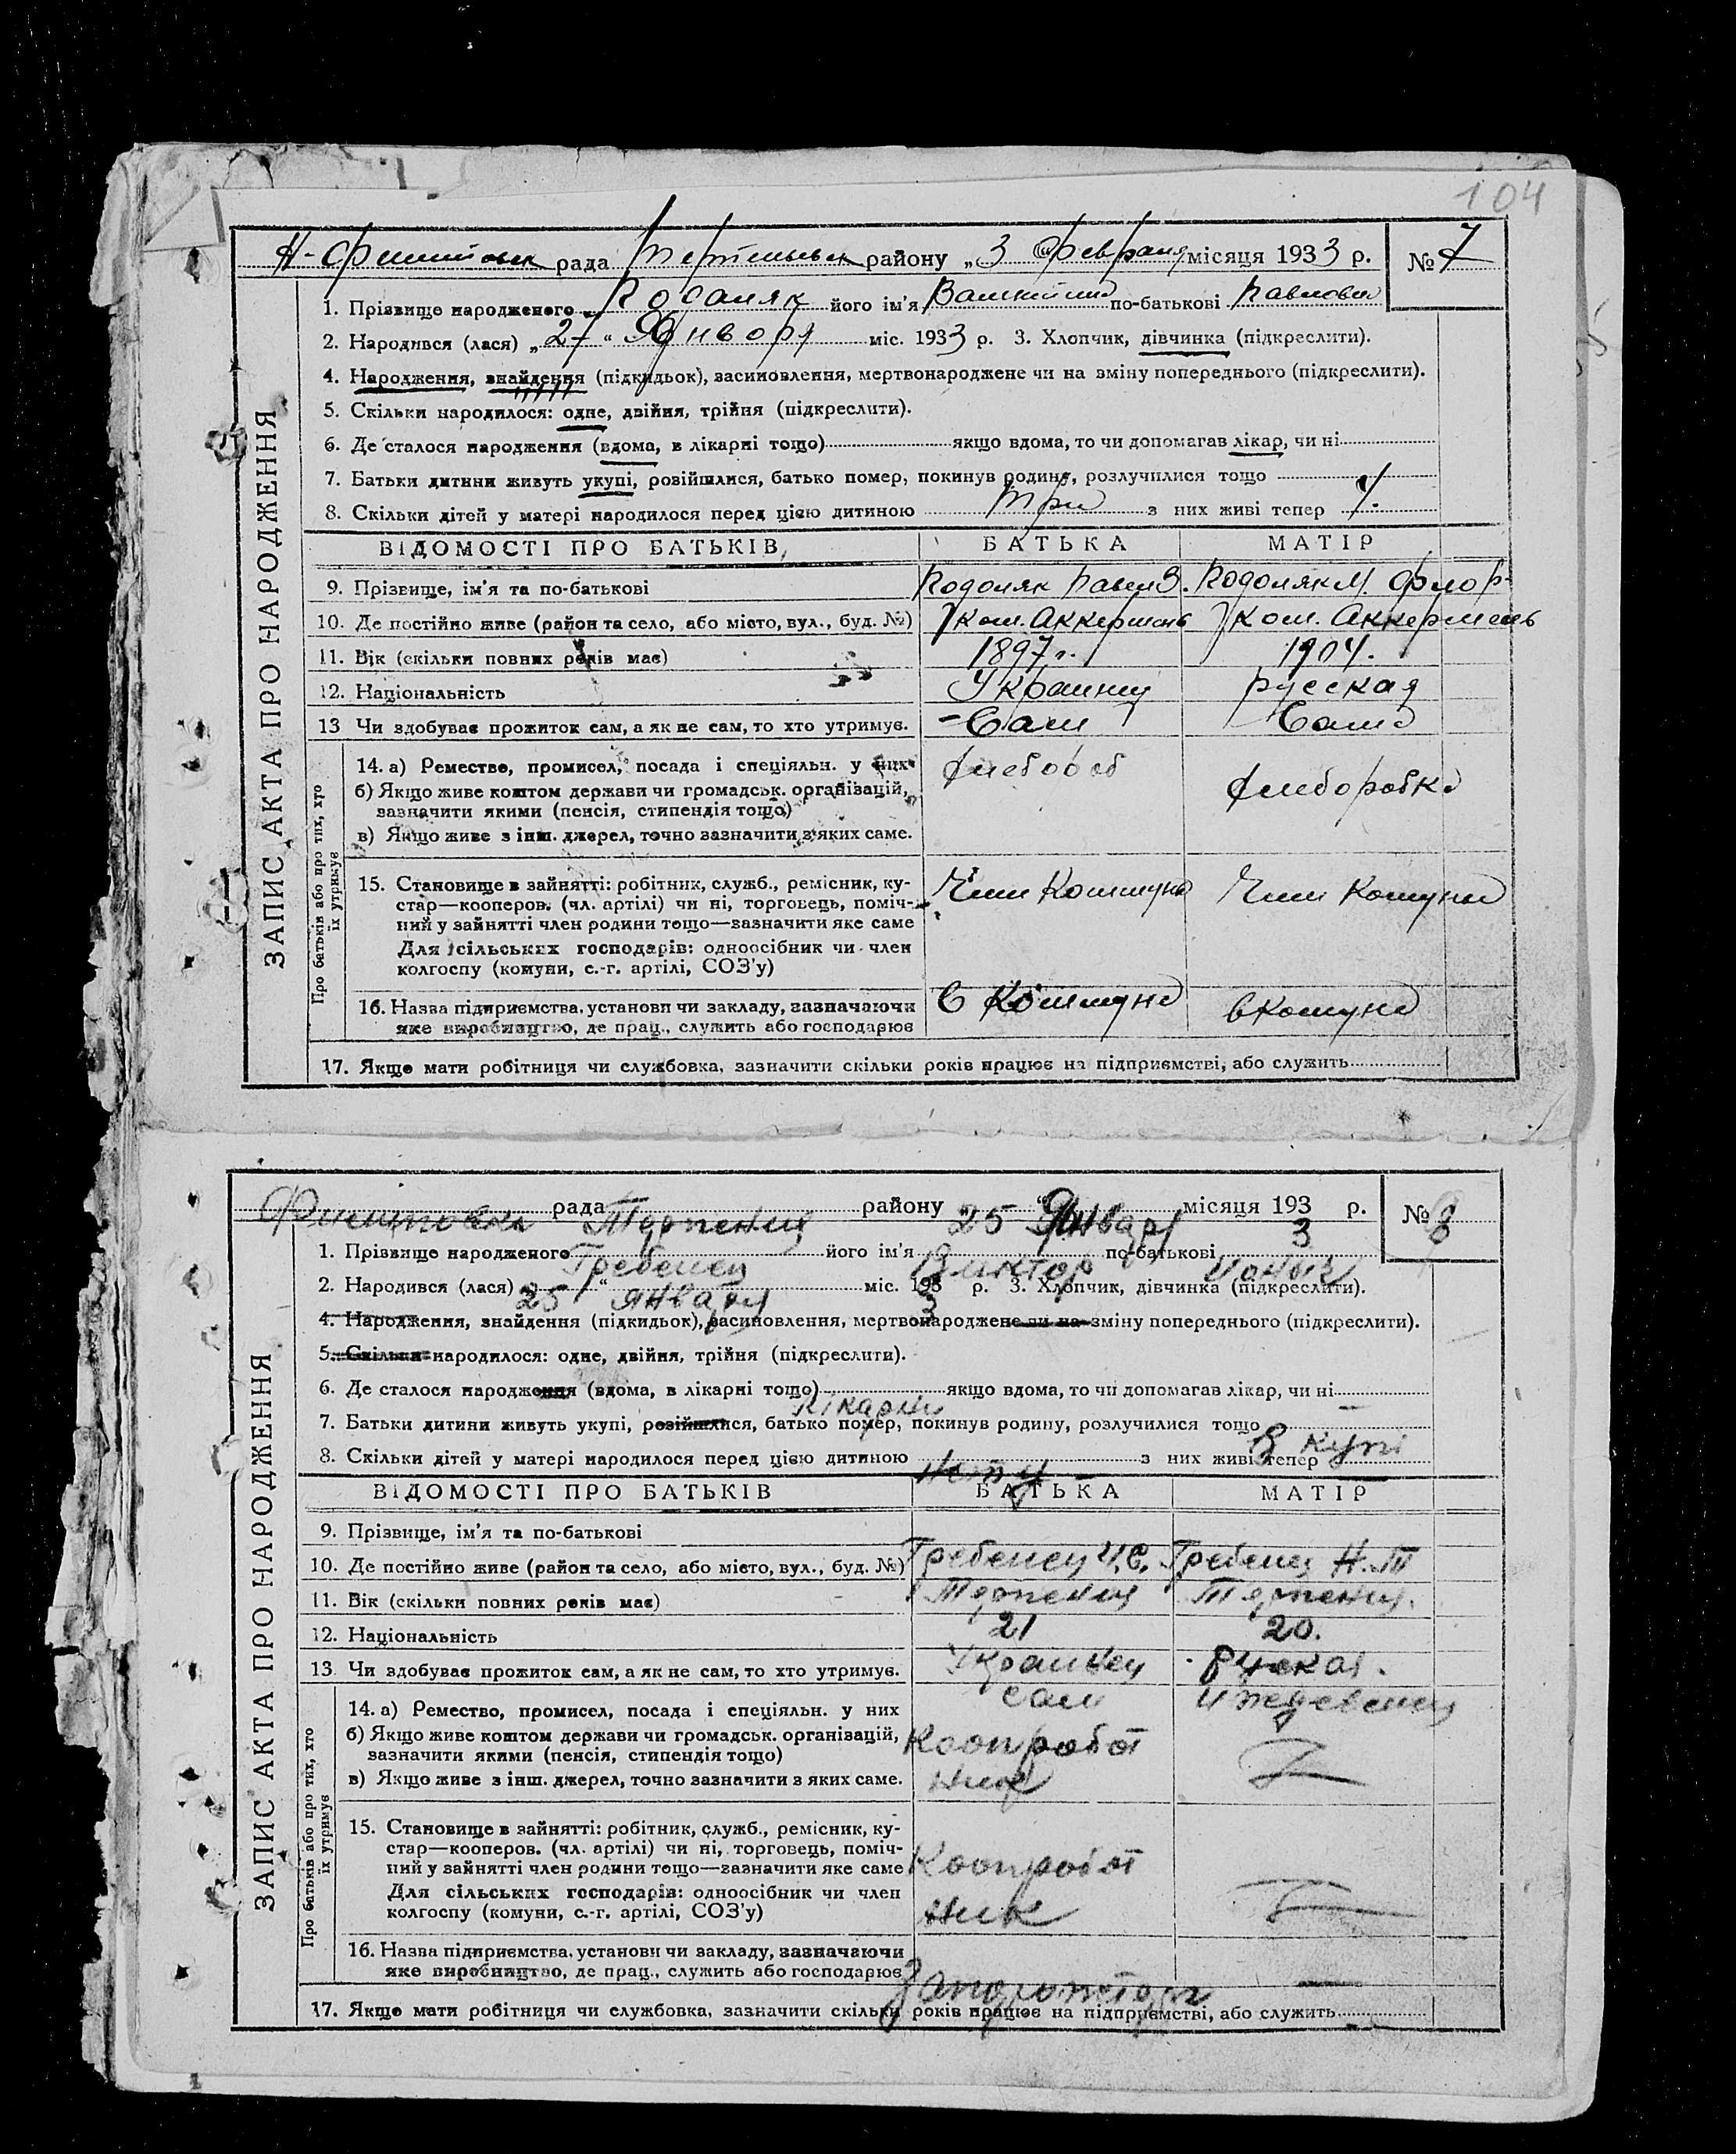 104
рада району „3 " месяця 1933 р. № 7
ЗАПИС АКТА ПРО НАРОДЖЕННЯ
1. Прізвище народженого його ім'я по-батькові Павлови
2. Народився (лася) „27" Январ міс. 1933 р. 3. Хлопчик, дівчинка (підкреслити).
4. Народження, знайдення (підкидьок), засиновлення, мертвонароджене чи на зміну попереднього (підкреслити).
5. Скільки народилося: одне, двійня, трійня (підкреслити).
6. Де сталося народження (вдома, в лікарні тощо) якщо вдома, то чи допомагав лікар, чи ні
7. Батьки дитини живуть укупі, розійшлися, батько помер, покинув родину, розлучилися тощо
8. Скільки дітей у матері народилося перед цією дитиною три з них живі тепер
ВІДОМОСТІ ПРО БАТЬКІВ БАТЬКА МАТІР
9. Прізвище, ім'я та по-батькові Подоляк Павел З. Подоляк М. Флор-
10. Де постійно живе (район та село, або місто, вул., буд. №) ком. Аккермень ком. Аккермень
11. Вік (скільки повних років має) 1897 г. 1904.
12. Національність Украинец русская
13 Чи здобуває прожиток сам, а як не сам, то хто утримує. Сам Сама
Про батьків або про тих, хто їх утримує
14. а) Ремество, промисел, посада і спеціяльн. у них хлебороб
б) Якщо живе коштом держави чи громадськ. організацій, хлеборобка
зазначити якими (пенсія, стипендія тощо)
в) Якщо живе з інш. джерел, точно зазначити з яких саме.
15. Становище в зайнятті: робітник, служб., ремісник, ку- Член Коммуни Член Комуни
стар—кооперов. (чл. артілі) чи ні, торговець, поміч-
ний у зайнятті член родини тощо—зазначити яке саме
Для сільських господарів: одноосібник чи член
колгоспу (комуни, с.-г. артілі, СОЗ'у)
16. Назва підприємства, установи чи закладу, зазначаючи в Коммуне в комуне
яке виробництво, де прац., служить або господарює
17. Якщо мати робітниця чи службовка, зазначити скільки років працює на підприємстві, або служить
рада Терпения району 25 "Январ місяця 1933 р. № 8
ЗАПИС АКТА ПРО НАРОДЖЕННЯ
1. Прізвище народженого Гребенец його ім'я Виктор по-батькові
2. Народився (лася) 25 " января міс. 1933 р. 3. Хлопчик, дівчинка (підкреслити).
4. Народження, знайдення (підкидьок), засиновлення, мертвонароджене чи на зміну попереднього (підкреслити).
5. Скільки народилося: одне, двійня, трійня (підкреслити).
6. Де сталося народження (вдома, в лікарні тощо) лікарні якщо вдома, то чи допомагав лікар, чи ні —
7. Батьки дитини живуть укупі, розійшлися, батько помер, покинув родину, розлучилися тощо В купі
8. Скільки дітей у матері народилося перед цією дитиною нету з них живі тепер —
ВІДОМОСТІ ПРО БАТЬКІВ БАТЬКА МАТІР
9. Прізвище, ім'я та по-батькові
10. Де постійно живе (район та село, або місто, вул., буд. №) Гребенец И.С. Гребенец Н.Т
11. Вік (скільки повних років має) Терпения Терпения.
12. Національність 21 20.
13. Чи здобуває прожиток сам, а як не сам, то хто утримує. Украинец Руская.
Про батьків або про тих, хто їх утримує
14. а) Ремество, промисел, посада і спеціяльн. у них сам ижدевенец
б) Якщо живе коштом держави чи громадськ. організацій, Кооправот
зазначити якими (пенсія, стипендія тощо)
в) Якщо живе з інш. джерел, точно зазначити з яких саме. ник
15. Становище в зайнятті: робітник, служб., ремісник, ку-
стар—кооперов. (чл. артілі) чи ні, торговець, поміч-
ний у зайнятті член родини тощо—зазначити яке саме Коопработ
Для сільських господарів: одноосібник чи член
колгоспу (комуни, с.-г. артілі, СОЗ'у) ник
16. Назва підприємства, установи чи закладу, зазначаючи
яке виробництво, де прац., служить або господарює —
17. Якщо мати робітниця чи службовка, зазначити скільки років працює на підприємстві, або служить